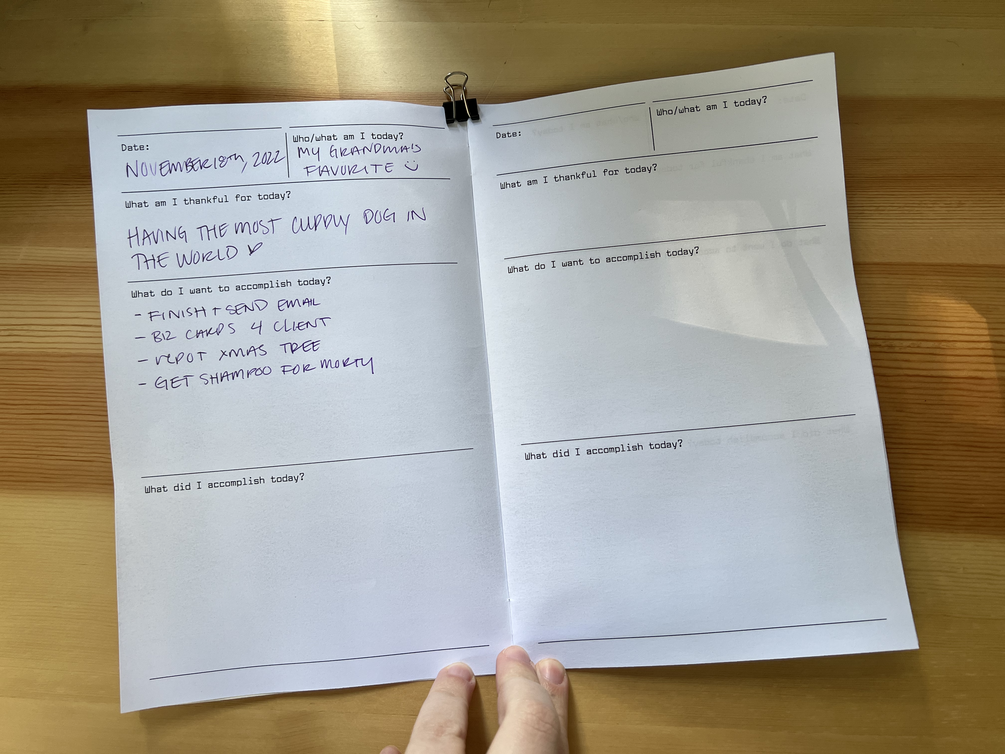 Date:
NOVEMBER 18th, 2022
Who/what am I today?
MY GRANDMA'S
FLAVORITE
What am I thankful for today?
HAVING THE MOST CUDDLY DOG IN
THE WORLD
What do I want to accomplish today?
- FINISH + SEND EMAIL
- BIZ CARDS 4 CLIENT
- rEPOT XMAS TREE
- GET SHAMPOO FOR MORTY
What did I accomplish today?
Date:
Who/what am I today?
What am I thankful for today?
What do I want to accomplish today?
What did I accomplish today?